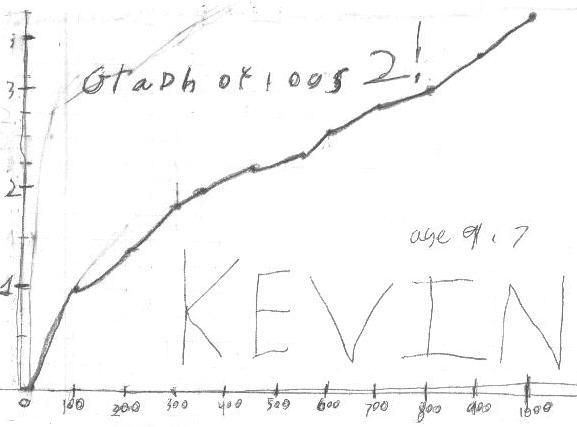 Graph of logs 2!
3
2
age 9.7
1
KEVIN
0 100 200 300 400 500 600 700 800 900 1000